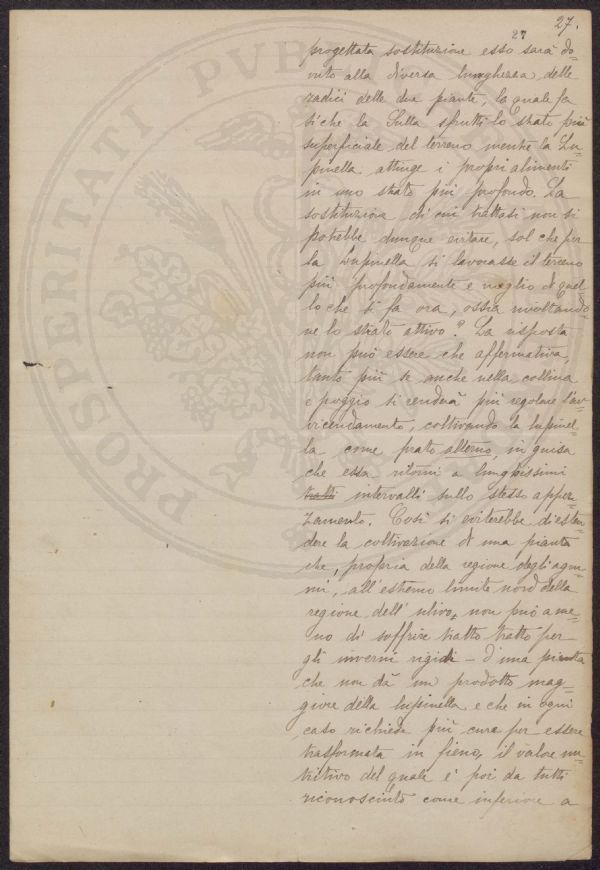 27.
27
progettata sostituzione esso sarà do-
vuto alla diversa lunghezza delle
radici delle due piante, la quale fa
sì che la Sulla sfrutti lo strato più
superficiale del terreno mentre la Lu-
pinella attinge i propri alimenti
in uno strato più profondo. La
sostituzione di cui trattasi non si
potrebbe dunque evitare, sol che per
la Lupinella si lavorasse il terreno
più profondamente e meglio di quel
lo che si fa ora, ossia rivoltando-
ne lo strato attivo? La risposta
non può essere che affermativa,
tanto più se anche nella collina
e poggio si renderà più regolare l'av-
vicendamento, coltivando la lupinel-
la come prato alterno, in guisa
che essa ritorni a lunghissimi
tratti intervalli sullo stesso appez-
zamento. Così si eviterebbe di esten-
dere la coltivazione di una pianta
che, propria della regione degli agru-
mi, all'estremo limite nord della
regione dell'ulivo, non può a me-
no di soffrire tratto tratto per
gli inverni rigidi - d'una pianta
che non dà un prodotto mag-
giore della lupinella e che in ogni
caso richiede più cura per essere
trasformata in fieno, il valore nu-
tritivo del quale è poi da tutti
riconosciuto come inferiore a
PROSPERITATI PVBLIC